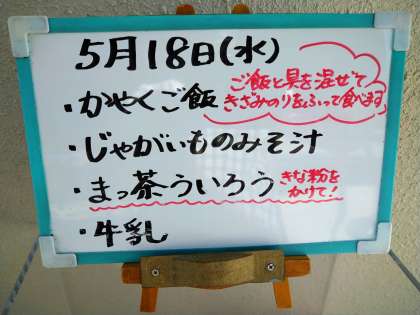 5月18日(水)
・かやくご飯
ご飯と具を混ぜて
きざみのりをふって食べます
・じゃがいものみそ汁
・まっ茶ういろう
きな粉を
かけて!
・牛乳